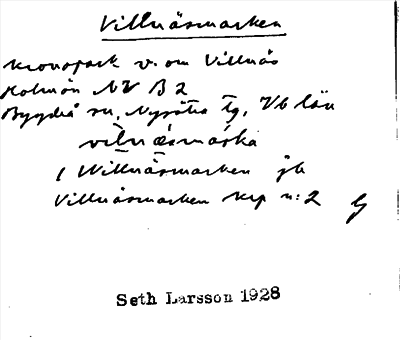 Villnäsmarken
Kronopark v. om Villnäs
Holmön NV B2
Bygdeå sn, Nysätra tg, Vb län
( Villnäsmarken jb
Villnäsmarken krp n:2 G
Seth Larsson 1928